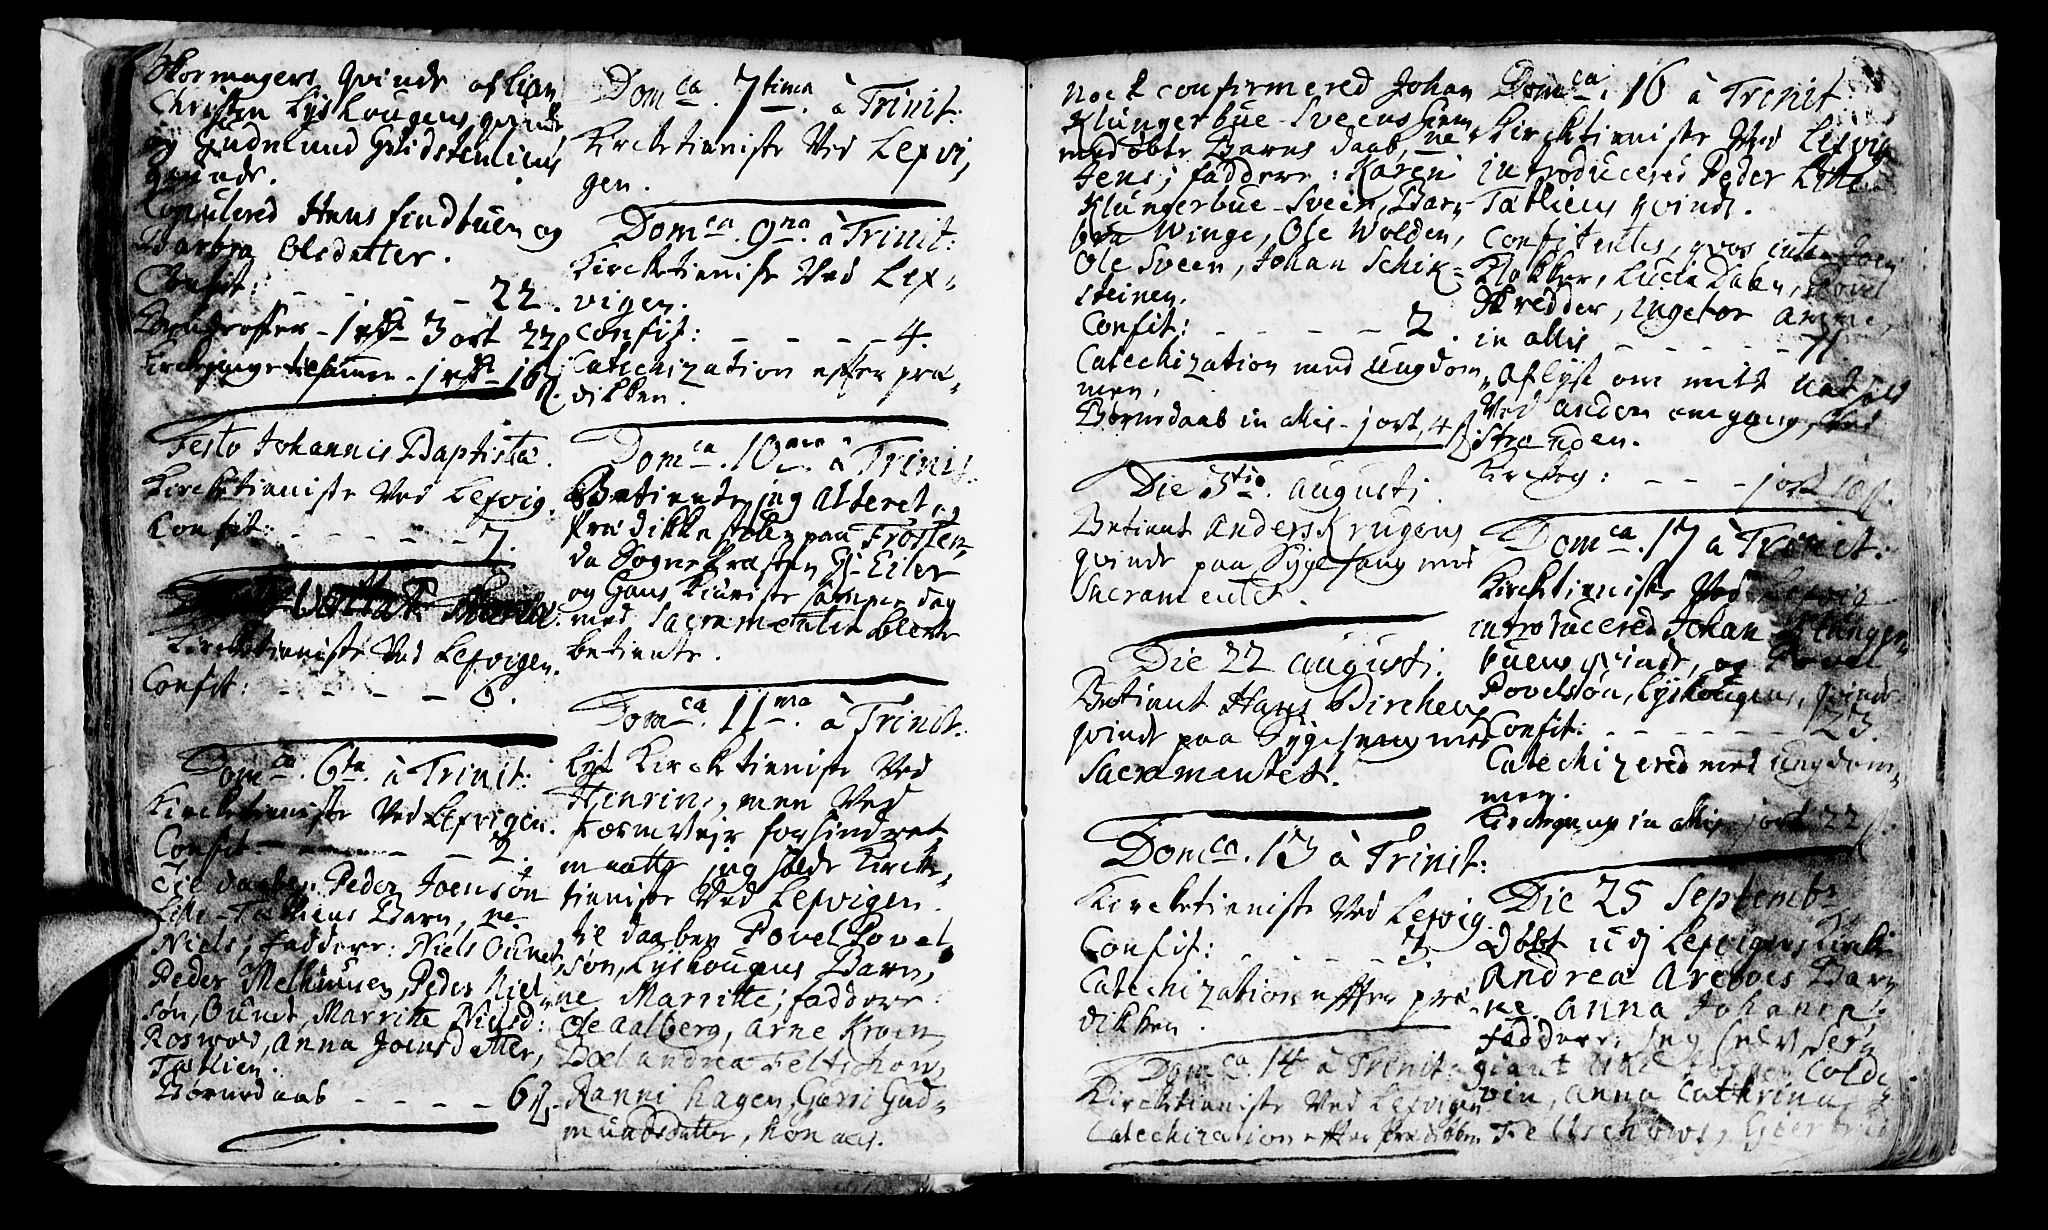 Skormagers qvinde af lian
Christen Lyskougens qvinde
og Gudmund Gridstenlines
qvinde.
Copulered Hans findbuen og
Barbra Olsdatter.
Confit: - - - - 22.
- 1 rdr 3 ort 22
- 1 rdr 16 s.
Festo Johannis Baptistæ.
Kircketieniste ved Lexvig.
Confit: - - - - - 7.
Kircketieniste ved Lexvigen.
Confit: - - - - 6.
Domca. 6ta. à Trinit:
Kircketieniste ved Lexvigen.
Confit - - - - 2.
til daaben Peder Joensøn
Lille-Tætliens Barn, ne
Niels; faddere: Niels
Peder Melhuusen, Peder Niel-
søn, Marritte Nielsd:
Roswod, Anna Joensdatter,
Tætlien.
Børnedaab - - - - 6 s.
Domca. 7tima. à Trinit:
Kircketieniste ved Lexvi,
gen.
Domca. 9na. à Trinit:
Kircketieniste ved Lex-
vigen.
Confit: - - - - 4.
Catechization effter præ-
diken.
Domca. 10ma. à Trinit.
Betiente jeg Alteret og
Prædikkestolen paa Frosten,
da Sognepræsten Hr. Eiler
og Hans kiæriste samme dag
med Sacramentet bleve
betiente.
Domca. 11ma. à Trinit.
lyst Kircketieniste ved
Henrin, men ved
stormveir forhindret
maatte jeg holde Kirck-
tieniste ved Lexvigen.
til daaben Povel Povel,
søn, Lyskougens Barn,
ne Marritte; faddere:
Ole Aalberg, Arne Kroen
Doel Andrea Feltschow,
Ranni hagen, Gorri Gud-
mundsdatter,
noch confirmered Johan
Klungerbue-Sveens hiem-
medøbte Barns daab, ne
Jens; faddere: Karen
Klungerbue-Sveen, Bar-
bra Winge, Ole Wolden,
Ole Sveen, Johan Schik-
steinen.
Confit: - - - - 2.
Catechization med ungdom-
men.
Børnedaab in alles - 1 ort, 4 s
Die 5tio. augusti.
Betient Anders Krugens
qvinde paa Sygeseng med
Sacramentet.
Die 22 augusti.
Betient Hans Birchens
qvinde paa Sygeseng med
Sacramentet.
Domca. 13 à Trinit:
Kircketieniste ved Lexvig.
Confit: - - - - 3.
Catechization effter præ-
dikken.
Domca. 14 à Trinit:
Kircketieniste ved Lexvigen
Catechization effter Prædikken
Domca. 16 à Trinit
Kircketieniste ved Lexvig
introducered Peder Lille
Tætliens qvinde.
Confitentes, qvos inter Joen
Klokker, Lucia Daben, Povel
Skredder, Ingebor
in alles - - - - - 71
Aflyst om mitt
ved anden omgang, ved
Stranden.
- - - 1 ort 10 s.
Domca. 17 à Trinit:
Kircktieniste ved Lexvig
introducered Johan Klunger-
buens qvinde, og Povel
Povelsøn, Lyskougens, qvinde
Confit: - - - - - - 23.
Catechizered med ungdom-
men.
Kirkegang in alles 1 ort 22 s.
Die 25 Septembr
døbt udj Lexvigens Kirke
Andrea Arebois Barn
ne. Anna Johanna;
faddere, jeg selv, Ser-
giant Colde,
vin, Anna Cathrina
Feltschows,